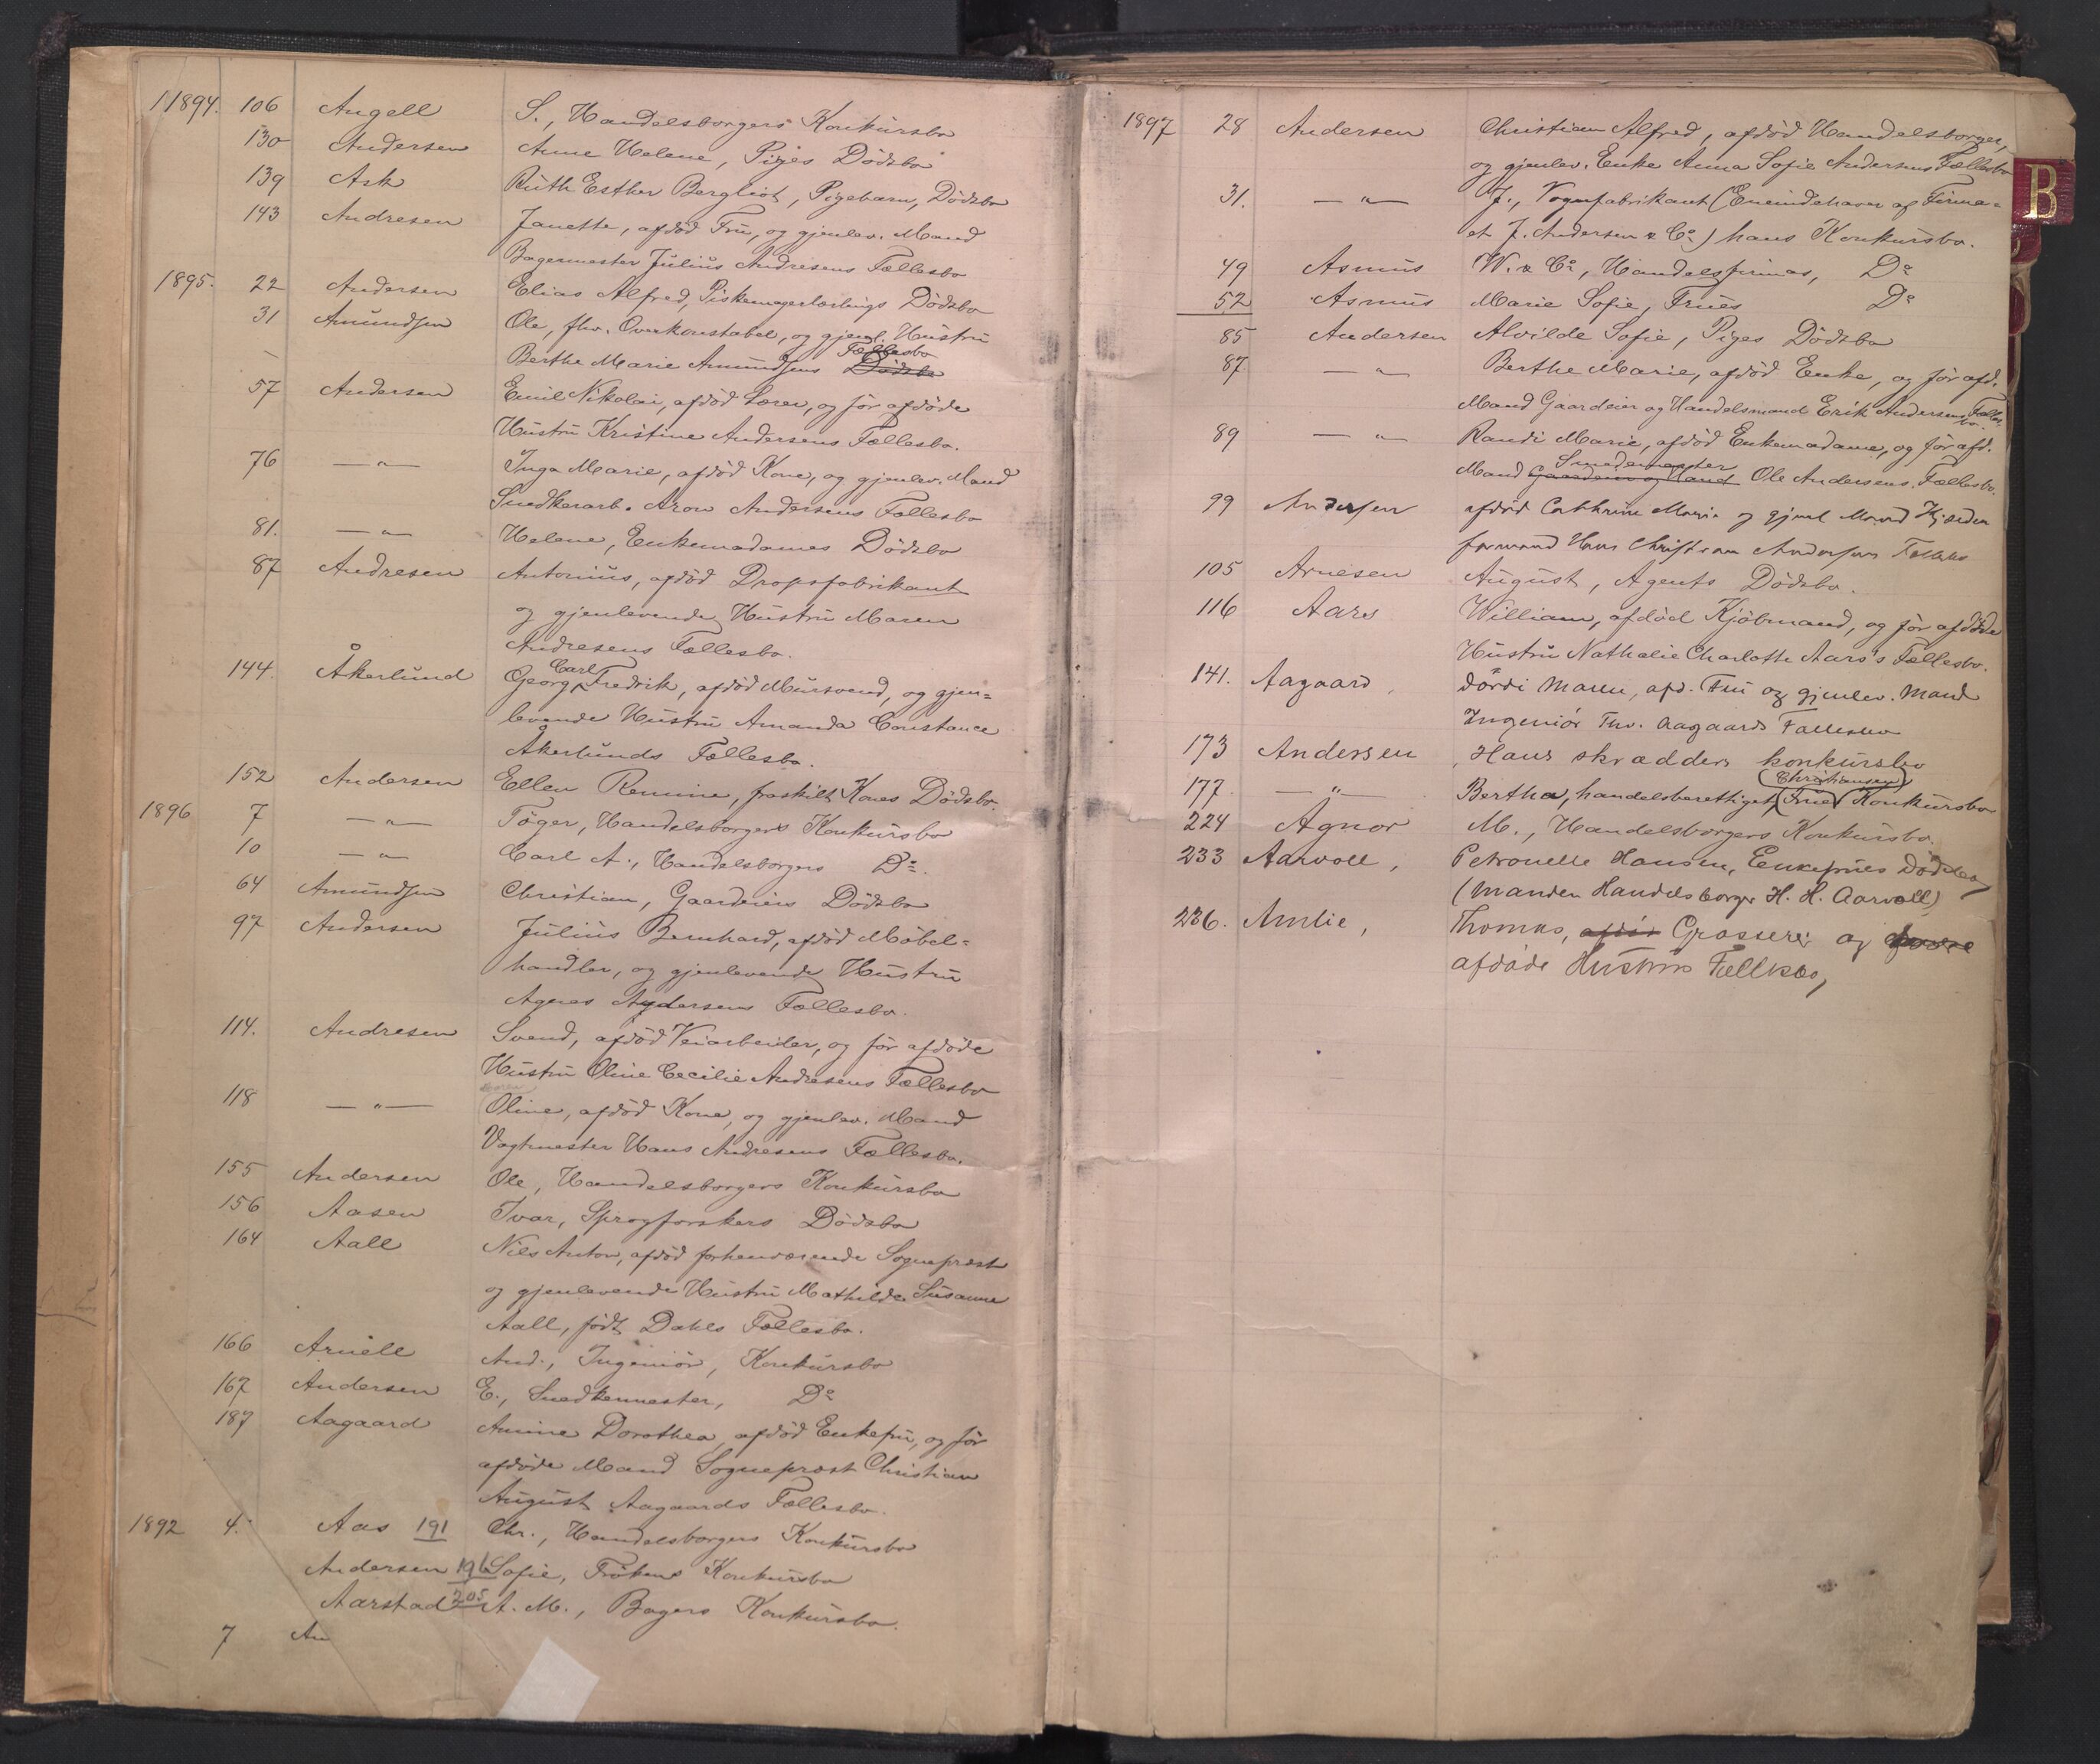 1894. 106 Angell S., Handelsborgers Konkursbo
130 Andersen Anne Helene, Piges Dödsbo
139 Ask Ruth Esther Bergliot, Pigebarn, Dödsbo
143 Andresen Janette, afdöd Fru, og gjenlev. Mand
Bagermester Julius Andresens Fællesbo
1895. 22 Andersen Elias Alfred, Piskemagerlærlings Dödsbo
31 Amundsen Ole, fhv. Overkonstabel, og gjenl. Hustru
Berthe Marie Amundsens Dödsbo Fællesbo
57 Andersen Emil Nikolai, afdöd Lærer, og för afdöde
Hustru Kristine Andersens Fællesbo.
76 — " — Inga Marie, afdöd Kone, og gjenlev. Mand
Snedkerarb. Aron Andersens Fællesbo
81. — " — Helene, Enkemadames Dödsbo
87 Andresen Antonius, afdöd Dropsfabrikant
og gjenlevende Hustru Maren
Andresens Fællesbo.
144. Åkerlund Georg Carl Fredrik, afdöd Mursvend, og gjen=
levende Hustru Amanda Constance
Åkerlunds Fællesbo.
152 Andersen Ellen Remine, fraskilt Kones Dödsbo.
1896 7 — " — Töger, Handelsborgers Konkursbo
10 — " — Carl A., Handelsborgers Do.
64 Amundsen Christian, Gaardeiers Dödsbo
97 Andersen Julius Bernhard, afdöd Möbel=
handler, og gjenlevende Hustru
Agnes Andersens Fællesbo.
114. Andresen Svend, afdöd Veiarbeider, og för afdöde
Hustru Oline Cecilie Andresens Fællesbo
118 — " — Oline, afdöd Kone, og gjenlev. Mand
Vagtmester Hans Andresens Fællesbo.
155 Andersen Ole, Handelsborgers Konkursbo
156 Aasen Ivar, Sprogforskers Dödsbo
164 Aall Nils Anton, afdöd forhenværende Sogneprest
og gjenlevende Hustru Mathilde Susanne
Aall, födt Dahls Fællesbo.
166 Arnell And., Ingeniör, Konkursbo
167 Andersen E., Snedkermester, Do
187 Aagaard Amine Dorothea, afdöd Enkefru, og för
afdöde Mand Sogneprest Christian
August Aagaards Fællesbo.
1892 4. Aas 191 Chr., Handelsborgers Konkursbo
Andersen 196 Sofie, Frökens Konkursbo
Aarstad 205 A. M., Bagers Konkursbo.
7 An
1897 28 Andersen Christian Alfred, afdöd Handelsborger,
og gjenlev. Enke Anna Sofie Andersens Fællesbo
31. — " — J., Vognfabrikant (Eneindehaver af Firma=
et J. Andersen & Co.) hans Konkursbo.
49 Asmus W. & Co, Handelsfirmas, Do
52 Asmus Marie Sofie, Frues Do
85 Andersen Alvilde Sofie, Piges Dödsbo
87 — " — Berthe Marie, afdöd Enke, og för afd.
Mand Gaardeier og Handelsmand Erik Andersens Fællesbo.
89 — " — Randi Marie, afdöd Enkemadame, og för afd.
Mand Gaardeier og Mand Smedemester Ole Andersens Fællesbo.
99 Andersen afdöd Cathrine Marie og gjenl Mand
formand Hans Christian Andersens Fællesbo
105 Arnesen August, Agents Dödsbo.
116 Aars William, afdöd Kjöbmand, og för afdöde
Hustru Nathalie Charlotte Aars's Fællesbo.
141. Aagaard, Dördi Maren, afd. Fru og gjenlev. Mand
Ingeniör Thv. Aagaards Fællesbo
173 Andersen, Hans skrædders konkursbo
177 — " — Bertha, handelsberettiget Frue (Christiansen) Konkursbo
224 Agnor M., Handelsborgers Konkursbo.
233 Aarvoll, Petronelle Hansen, Enkefrues Dödsbo,
(manden Handelsborger H. H. Aarvoll)
236. Amlie, Thomas, afdöd Grosserer og
afdöde Hustrus Fællesbo,
B